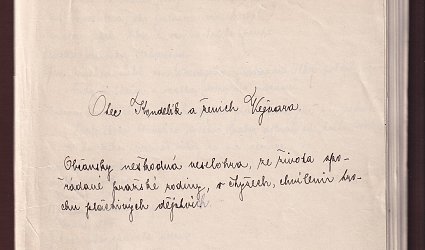 Otec Kondelík a ženich Vejvara.
Občansky neškodná veselohra, ze života spo-
řádané pražské rodiny, o čtyřech, chvílemi tro-
chu pláčtivých dějstvích